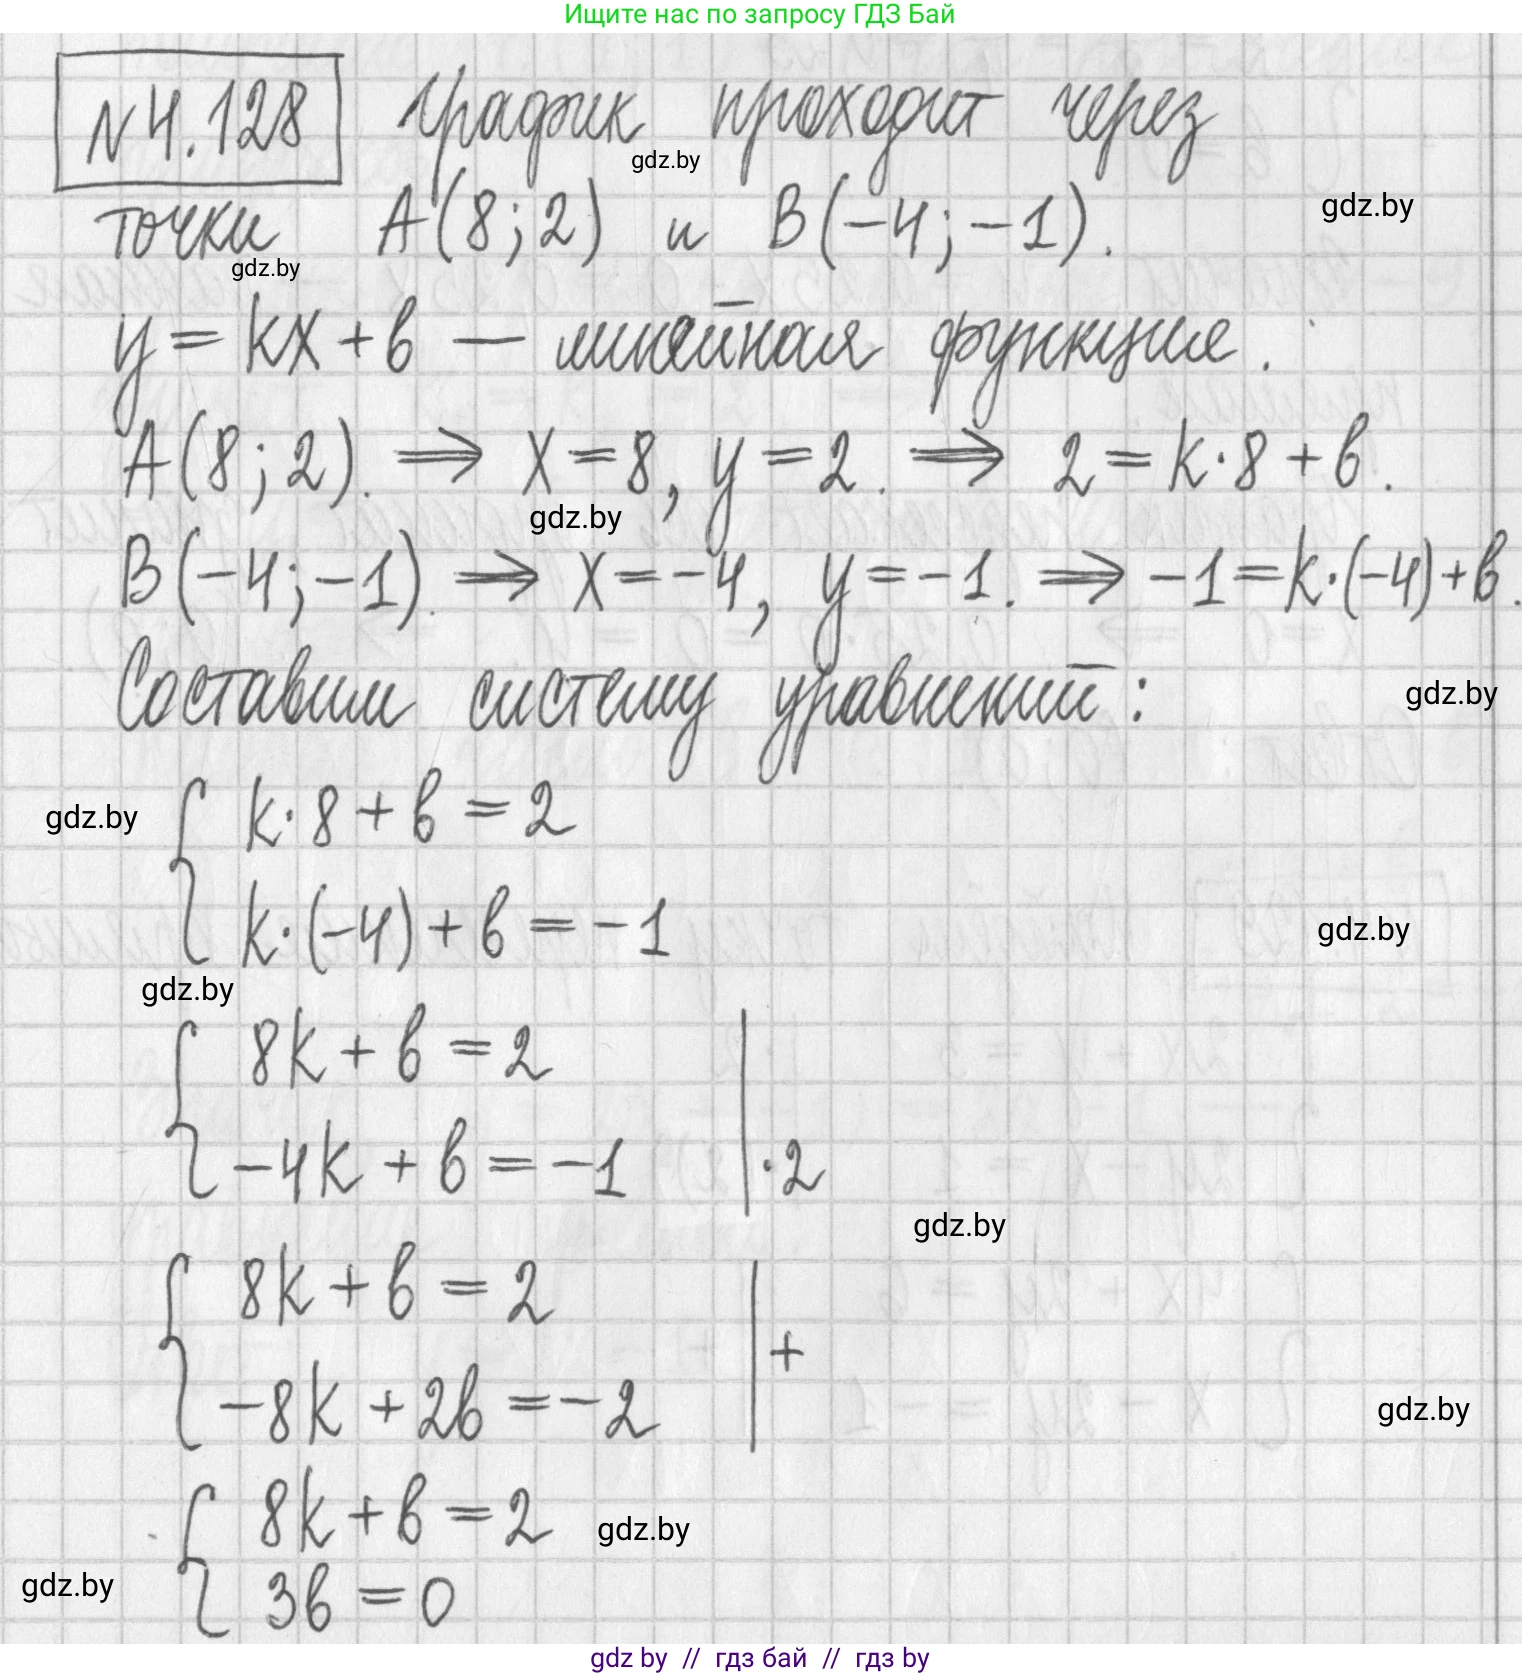 Ищите нас по запросу ГДЗ Бай
N4.128 График проходит через
gdz.by
точки A(8;2) и B(-4;-1).
gdz.by
gdz.by
y = kx + b — линейная функция.
A(8;2). ⟹ x = 8, y = 2. ⟹ 2 = k·8 + b.
gdz.by
B(-4;-1). ⟹ x = -4, y = -1. ⟹ -1 = k·(-4) + b.
Составим систему уравнений:
gdz.by
k·8 + b = 2
gdz.by
k·(-4) + b = -1
gdz.by
gdz.by
8k + b = 2
-4k + b = -1 | ·2
gdz.by
8k + b = 2
| +
-8k + 2b = -2
gdz.by
8k + b = 2
gdz.by
3b = 0
gdz.by
gdz by // гдз бай // гдз by